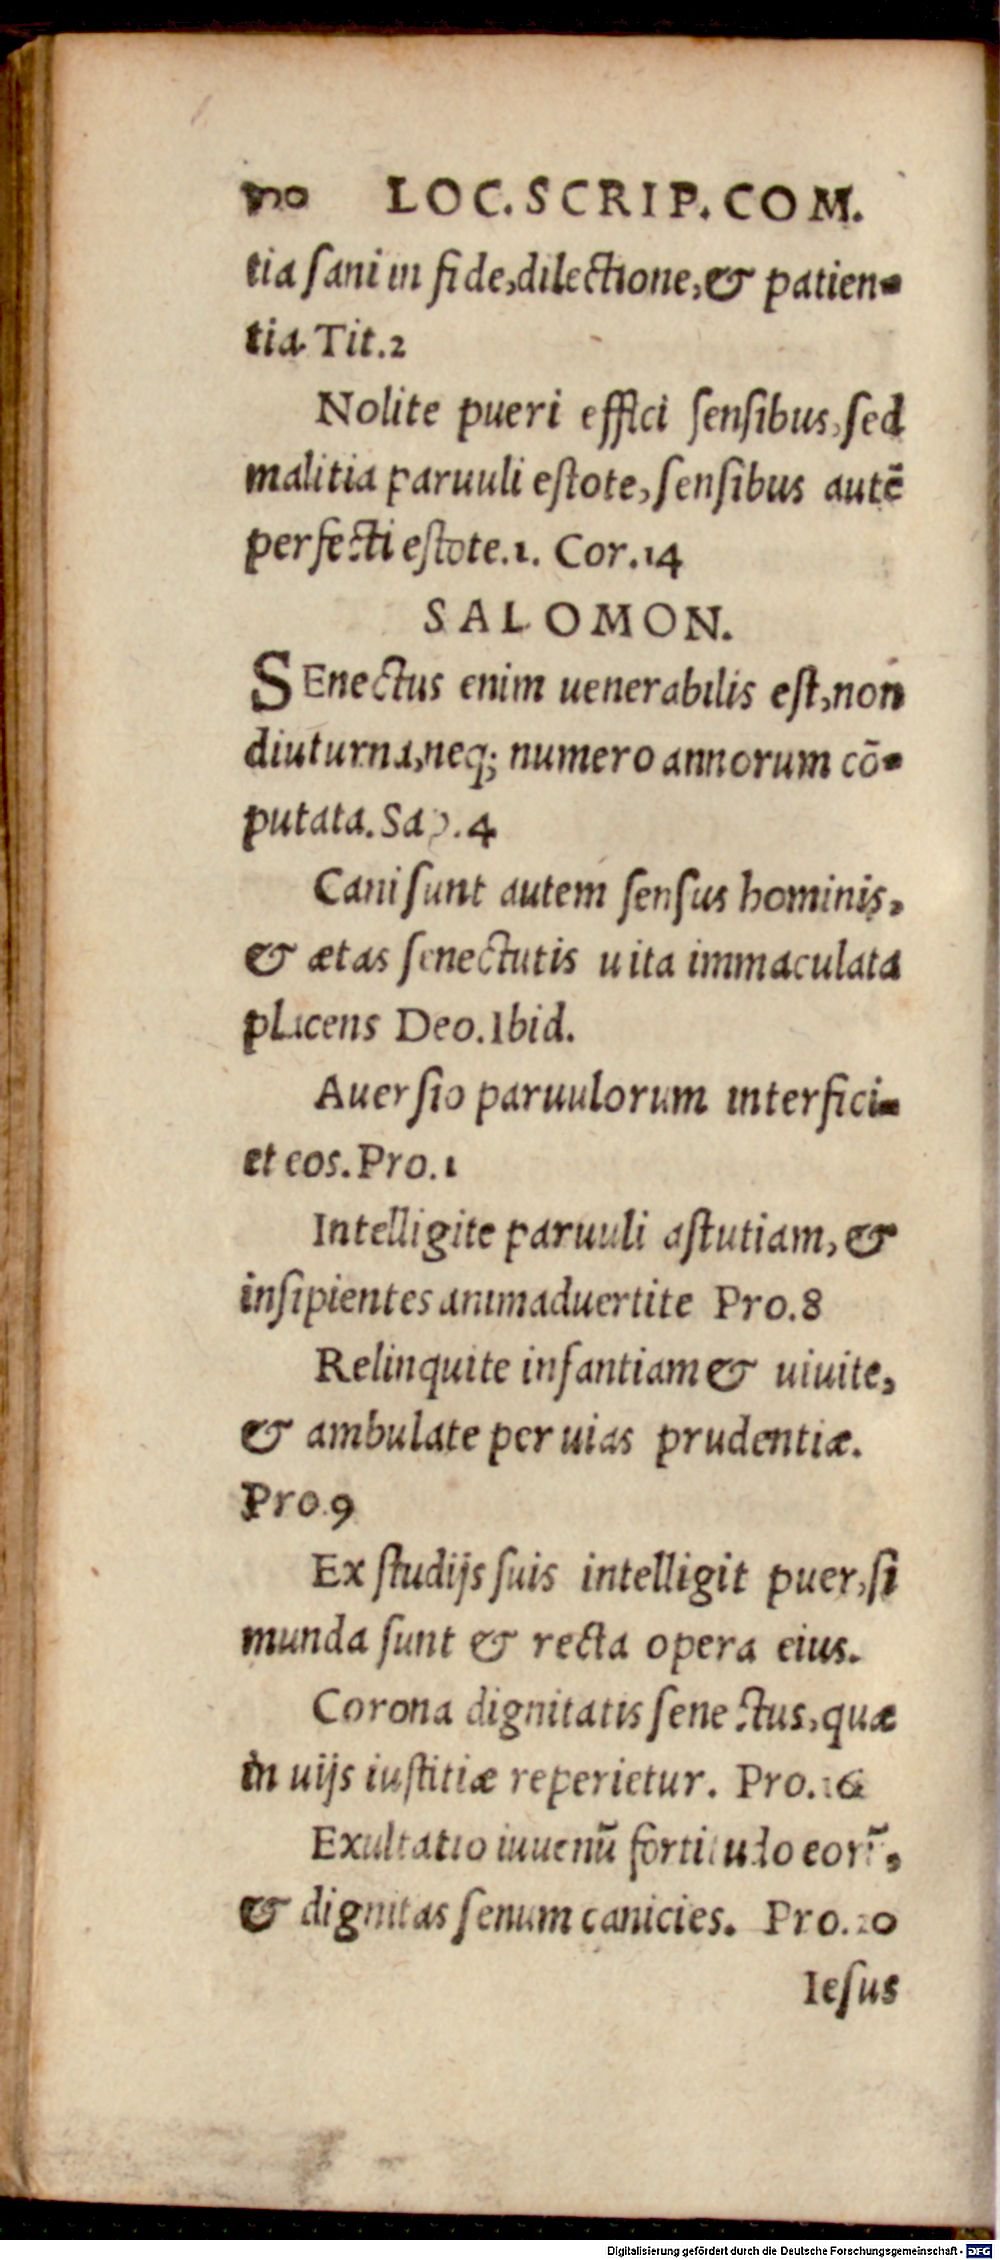 LOC. SCRIP. COM.
tia sani in fide, dilectione, & patien-
tia. Tit. 2
Nolite pueri effici sensibus, sed
malitia paruuli estote, sensibus autē
perfecti estote. 1. Cor. 14
SALOMON.
SEnectus enim uenerabilis est, non
diuturna, neq; numero annorum cō-
putata. Sap. 4
Cani sunt autem sensus hominis,
& ætas senectutis uita immaculata
placens Deo. Ibid.
Auersio paruulorum interfici-
et eos. Pro. 1
Intelligite paruuli astutiam, &
insipientes animaduertite Pro. 8
Relinquite infantiam & uiuite,
& ambulate per uias prudentiæ.
Pro. 9
Ex studijs suis intelligit puer, si
munda sunt & recta opera eius.
Corona dignitatis senectus, quæ
in uijs iustitiæ reperietur. Pro. 16
Exultatio iuuenū fortitudo eorū,
& dignitas senum canicies. Pro. 20
Iesus
Digitalisierung gefördert durch die Deutsche Forschungsgemeinschaft - DFG